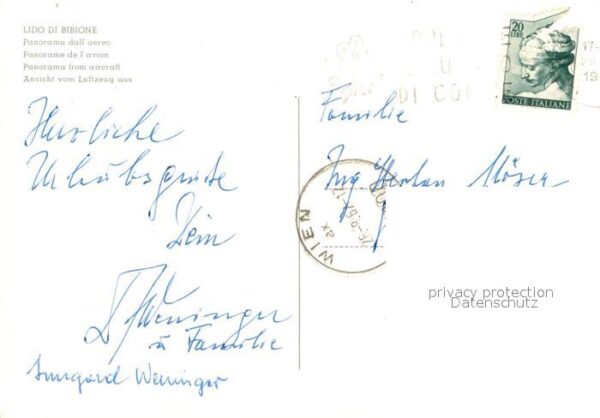 LIDO DI BIBIONE
Panorama dall'aereo
Panorame de l'avion
Panorama from aircraft
Ansicht vom Luftzeug aus
Herzliche
Urlaubsgrüße
Dein
Weninger
u Familie
Irmgard Weninger
20
LIRE
POSTE ITALIANE
DI CO
17-
19
Familie
Ing Möser
WIEN
privacy protection
Datenschutz